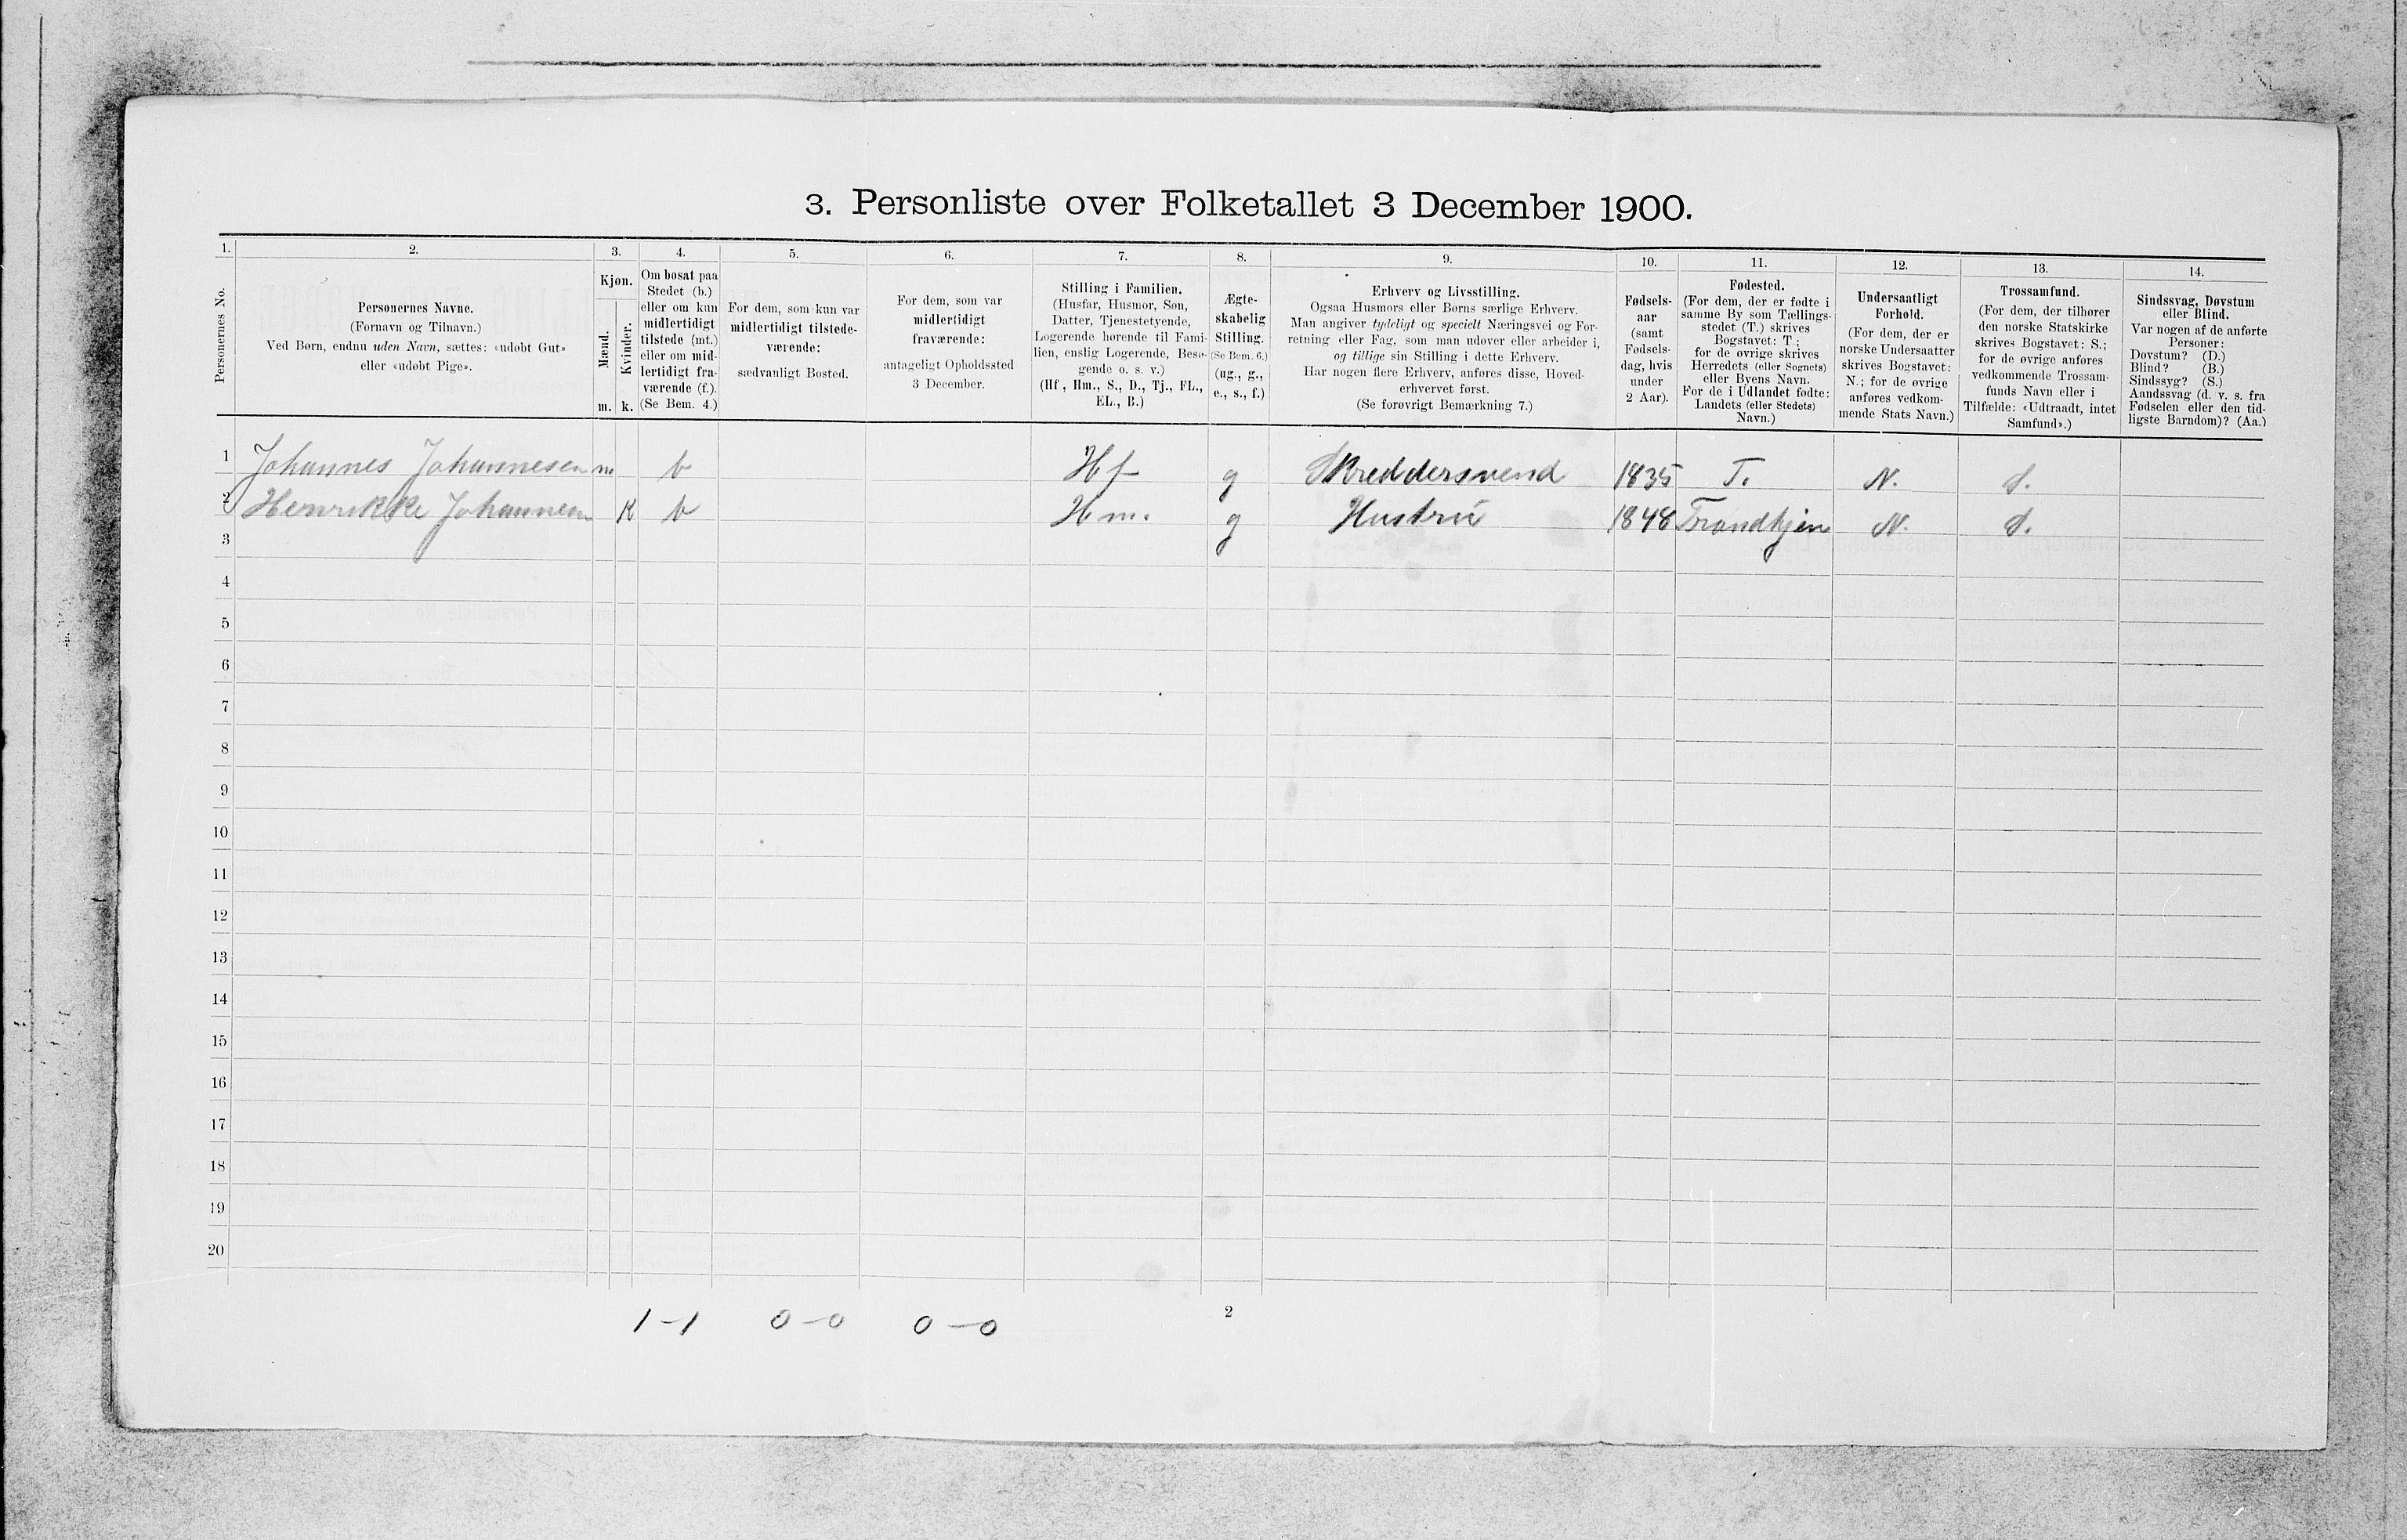 3. Personliste over Folketallet 3 December 1900.
1. 2. 3. 4. 5. 6. 7. 8. 9. 10. 11. 12. 13. 14.
Personernes No.
Personernes Navne.
(Fornavn og Tilnavn.)
Ved Børn, endnu uden Navn, sættes: «udøbt Gut»
eller «udøbt Pige».
Kjøn.
Mænd.
m.
Kvinder.
k.
Om bosat paa
Stedet (b.)
eller om kun
midlertidigt
tilstede (mt.)
eller om mid-
lertidigt fra-
værende (f.).
(Se Bem. 4.)
For dem, som kun var
midlertidigt tilstede-
værende:
sædvanligt Bosted.
For dem, som var
midlertidigt
fraværende:
antageligt Opholdssted
3 December.
Stilling i Familien.
(Husfar, Husmor, Søn,
Datter, Tjenestetyende,
Logerende hørende til Fami-
lien, enslig Logerende, Besø-
gende o. s. v.)
(Hf, Hm., S., D., Tj., FL.,
EL., B.)
Ægte-
skabelig
Stilling.
(Se Bem. 6.)
(ug., g.,
e., s., f.)
Erhverv og Livsstilling.
Ogsaa Husmors eller Børns særlige Erhverv.
Man angiver tydeligt og specielt Næringsvei og For-
retning eller Fag, som man udøver eller arbeider i,
og tillige sin Stilling i dette Erhverv.
Har nogen flere Erhverv, anføres disse, Hoved-
erhvervet først.
(Se forøvrigt Bemærkning 7.)
Fødsels-
aar
(samt
Fødsels-
dag, hvis
under
2 Aar).
Fødested.
(For dem, der er fødte i
samme By som Tællings-
stedet (T.) skrives
Bogstavet: T.;
for de øvrige skrives
Herredets (eller Sognets)
eller Byens Navn.
For de i Udlandet fødte:
Landets (eller Stedets)
Navn.)
Undersaatligt
Forhold.
(For dem, der er
norske Undersaatter
skrives Bogstavet:
N.; for de øvrige
anføres vedkom-
mende Stats Navn.)
Trossamfund.
(For dem, der tilhører
den norske Statskirke
skrives Bogstavet: S.;
for de øvrige anføres
vedkommende Trossam-
funds Navn eller i
Tilfælde: «Udtraadt, intet
Samfund».)
Sindssvag, Døvstum
eller Blind.
Var nogen af de anførte
Personer:
Døvstum? (D.)
Blind? (B.)
Sindssyg? (S.)
Aandssvag (d. v. s. fra
Fødselen eller den tid-
ligste Barndom)? (Aa.)
1 Johannes Johannesen m b Hf g Skreddersvend 1835 T. N. S.
2 Henrikke Johannesen K b Hm. g Hustru 1848 Trondhjem N. S.
3
4
5
6
7
8
9
10
11
12
13
14
15
16
17
18
19
20
1-1 0-0 0-0
2